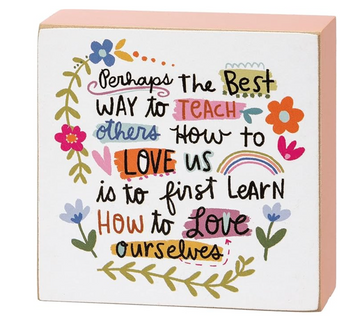 Perhaps THE BEST
WAY to TEACH
others How to
LOVE US
is to first LEARN
HOW to Love
ourselves